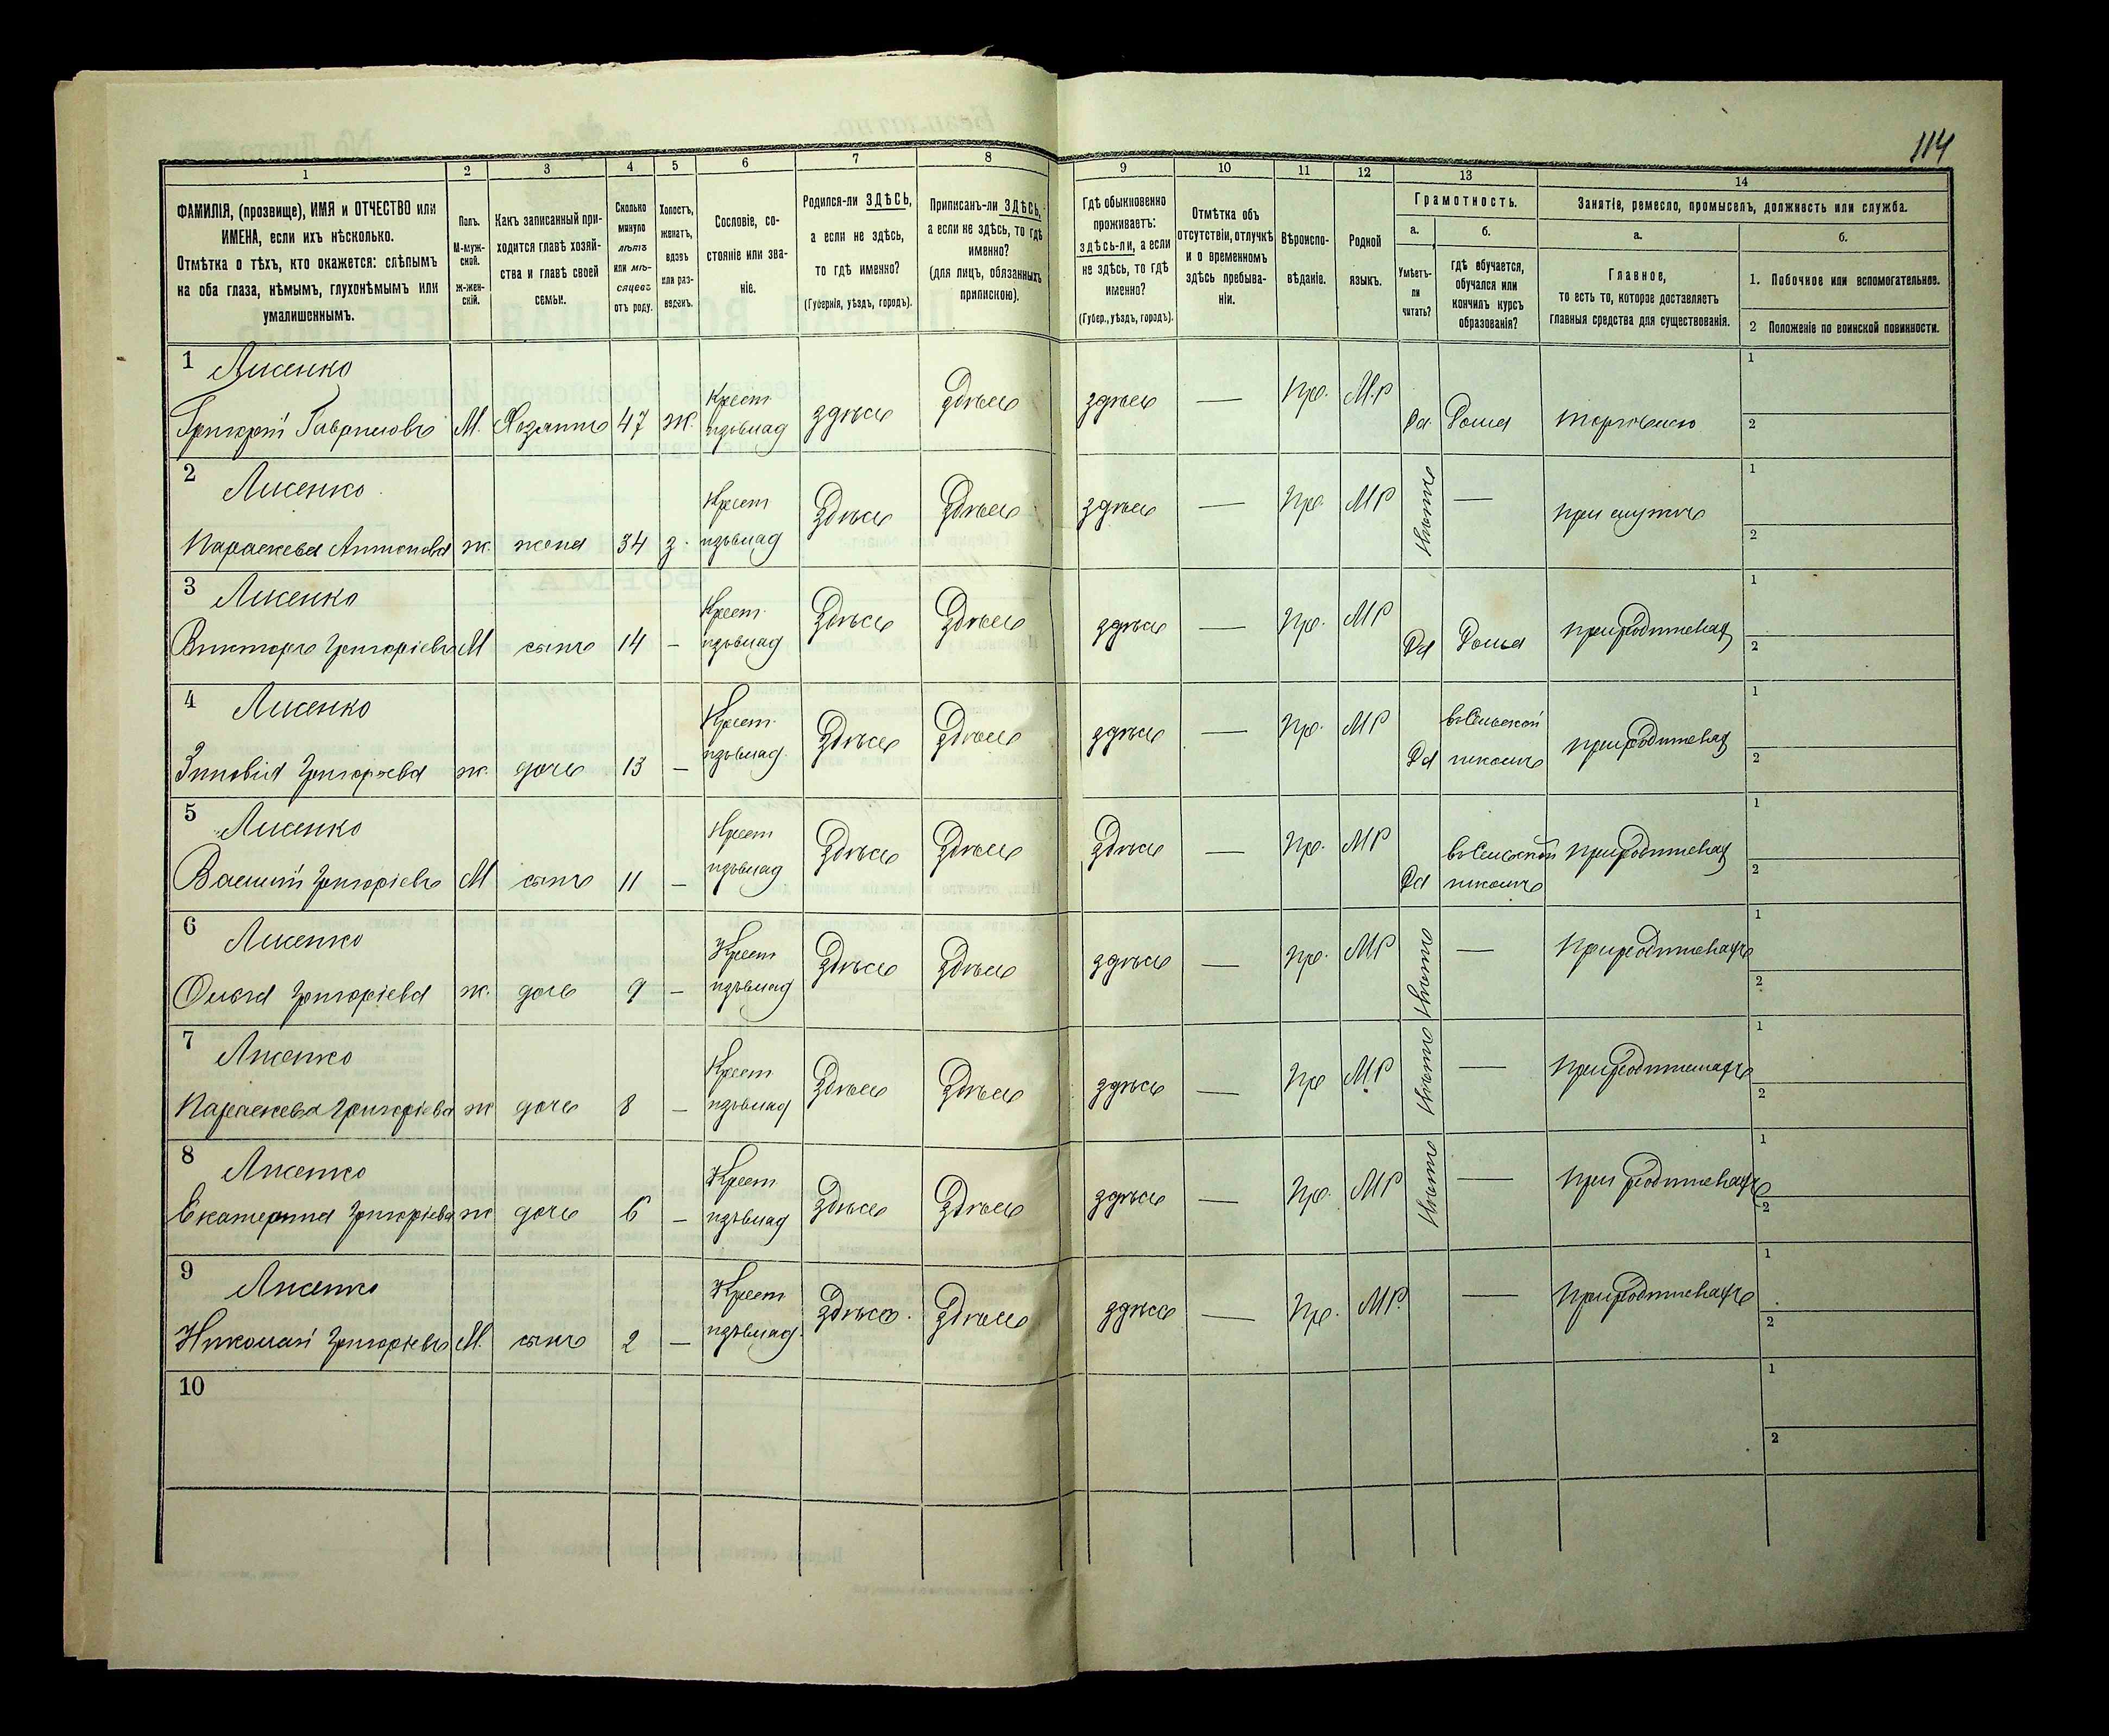 114
1 2 3 4 5 6 7 8 9 10 11 12 13 14
ФАМИЛІЯ, (прозвище), ИМЯ и ОТЧЕСТВО или
ИМЕНА, если ихъ нѣсколько.
Отмѣтка о тѣхъ, кто окажется: слѣпымъ
на оба глаза, нѣмымъ, глухонѣмымъ или
умалишеннымъ.
Полъ.
М-муж-
ской.
ж-жен-
скій.
Какъ записанный при-
ходится главѣ хозяй-
ства и главѣ своей
семьи.
Сколько
минуло
лѣтъ
или мѣ-
сяцевъ
отъ роду.
Холостъ,
женатъ,
вдовъ
или раз-
веденъ.
Сословіе, со-
стояніе или зва-
ніе.
Родился-ли ЗДѢСЬ,
а если не здѣсь,
то гдѣ именно?
(Губернія, уѣздъ, городъ).
Приписанъ-ли ЗДѢСЬ,
а если не здѣсь, то гдѣ
именно?
(для лицъ, обязанныхъ
припискою).
Гдѣ обыкновенно
проживаетъ:
здѣсь-ли, а если
не здѣсь, то гдѣ
именно?
(Губер., уѣздъ, городъ).
Отмѣтка объ
отсутствіи, отлучкѣ
и о временномъ
здѣсь пребыва-
ніи.
Вѣроиспо-
вѣданіе.
Родной
языкъ.
Грамотность.
а.
Умѣетъ-
ли
читать?
б.
гдѣ обучается,
обучался или
кончилъ курсъ
образованія?
Занятіе, ремесло, промыселъ, должность или служба.
а.
Главное,
то есть то, которое доставляетъ
главныя средства для существованія.
б.
1. Побочное или вспомогательное.
2 Положеніе по воинской повинности.
1 Лисенко
Григорій Гавриловъ М. Хозяинъ 47 ж. Крест. изъ влад здѣсь здѣсь здѣсь — Пр. М.Р Да Дома торговлею
1
2
2 Лисенко
Параскева Антонова ж. жена 34 з. Крест изъ влад здѣсь здѣсь здѣсь — Пр. МР Нѣтъ — при мужѣ
1
2
3 Лисенко
Викторъ Григоріевъ М сынъ 14 — Крест. изъ влад здѣсь здѣсь здѣсь — Пр. МР Да Дома при родителяхъ
1
2
4 Лисенко
Зиновія Григорьева ж. дочь 13 — Крест. изъ влад. здѣсь здѣсь здѣсь — Пр. МР Да въ Сельской школѣ при родителяхъ
1
2
5 Лисенко
Василій Григоріевъ М сынъ 11 — Крест изъ влад здѣсь здѣсь здѣсь — Пр. МР Да въ Сельской школѣ при родителяхъ
1
2
6 Лисенко
Ольга Григоріева ж. дочь 9 — Крест изъ влад здѣсь здѣсь здѣсь — Пр. МР Нѣтъ — при родителяхъ
1
2
7 Лисенко
Параскева Григоріева ж дочь 8 — Крест изъ влад здѣсь здѣсь здѣсь — Пр МР Нѣтъ — при родителяхъ
1
2
8 Лисенко
Екатерина Григоріева ж дочь 6 — Крест изъ влад здѣсь здѣсь здѣсь — Пр. МР Нѣтъ — при родителяхъ
1
2
9 Лисенко
Николай Григоріевъ М. сынъ 2 — Крест изъ влад. здѣсь здѣсь здѣсь — Пр. МР. — при родителяхъ
1
2
10
1
2